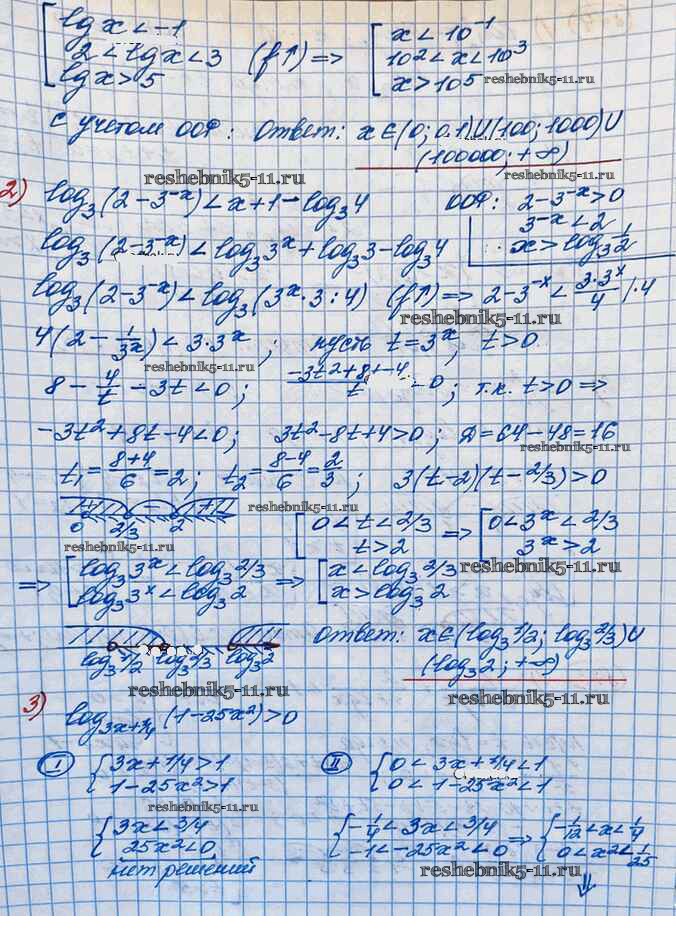 [ lg x < -1
2 < lg x < 3 (f↑) =>
lg x > 5
[ x < 10⁻¹
10² < x < 10³
x > 10⁵
reshebnik5-11.ru
С учетом ООФ: Ответ: x∈(0; 0.1)U(100; 1000)U
(100000; +∞)
reshebnik5-11.ru
reshebnik5-11.ru
2) log₃(2-3⁻ˣ) < x+1-log₃4 ООФ: 2-3⁻ˣ>0
3⁻ˣ<2
x>log₃ 1/2
log₃(2-3⁻ˣ) < log₃3ˣ + log₃3 - log₃4
log₃(2-3⁻ˣ) < log₃(3ˣ·3:4) (f↑) => 2-3⁻ˣ < 3·3ˣ/4 |·4
reshebnik5-11.ru
4(2 - 1/3ˣ) < 3·3ˣ; пусть t=3ˣ, t>0
reshebnik5-11.ru
8 - 4/t - 3t < 0; -3t²+8t-4/t < 0; т.к. t>0 =>
-3t²+8t-4<0; 3t²-8t+4>0; D=64-48=16
reshebnik5-11.ru
t₁ = 8+4/6 = 2; t₂ = 8-4/6 = 2/3; 3(t-2)(t-2/3)>0
+ - +
reshebnik5-11.ru
0 2/3 2
[ 0<t<2/3
t>2
=> [ 0<3ˣ<2/3
3ˣ>2
reshebnik5-11.ru
reshebnik5-11.ru
=> [ log₃3ˣ<log₃2/3
log₃3ˣ<log₃2
=> [ x<log₃2/3
x>log₃2
log₃1/2 log₃2/3 log₃2
Ответ: x∈(log₃1/2; log₃2/3)U
(log₃2; +∞)
reshebnik5-11.ru
reshebnik5-11.ru
3) log₃ₓ₊₁/₄(1-25x²)>0
I { 3x+1/4>1
1-25x²>1
II { 0<3x+1/4<1
0<1-25x²<1
reshebnik5-11.ru
{ 3x<3/4
25x²<0
нет решений
{ -1/4<3x<3/4
-1<-25x²<0
=> { -1/12<x<1/4
0<x²<1/25
reshebnik5-11.ru
reshebnik5-11.ru
⇓